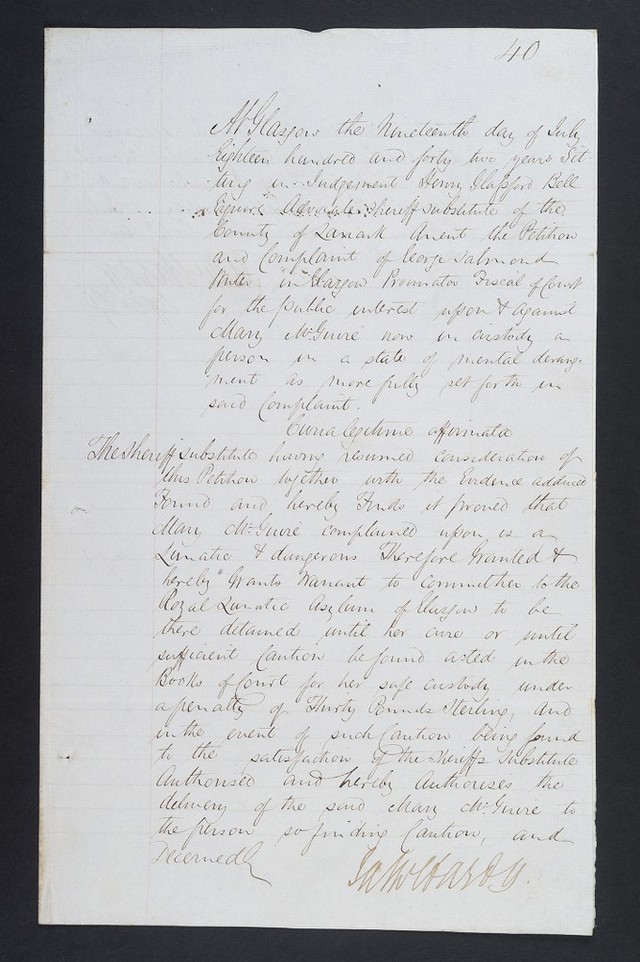 40
At Glasgow the Nineteenth day of July
Eighteen hundred and forty two years Sit-
ting in Judgement Henry Glassford Bell
Esquire Advocate Sheriff substitute of the
County of Lanark Anent the Petition
and Complaint of George Salmond
Writer in Glasgow Procurator Fiscal of Court
for the public interest upon & against
Mary McGuire now in custody a
person in a state of mental derange-
ment as more fully set forth in
said Complaint.
Curia legitime affirmata
The Sheriff substitute having resumed consideration of
this Petition together with the Evidence adduced
Found and hereby Finds it proved that
Mary McGuire complained upon is a
Lunatic & dangerous Therefore Granted &
hereby Grants Warrant to commit her to the
Royal Lunatic Asylum of Glasgow to be
there detained until her cure or until
sufficient Caution be found acted in the
Books of Court for her safe custody under
a penalty of Thirty Pounds Sterling, and
in the event of such Caution being found
to the satisfaction of the Sheriffs Substitute
Authorised and hereby Authorises the
delivery of the said Mary McGuire to
the person so finding Caution, and
Decerned